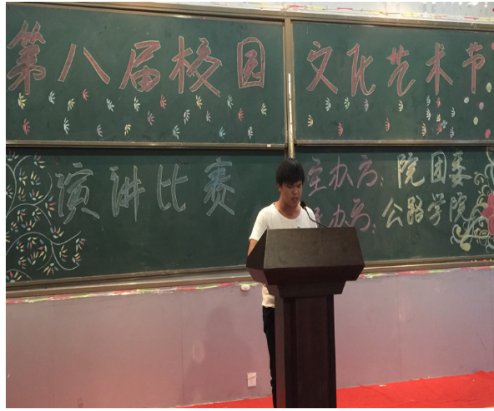 第八届校园文化艺术节
演讲比赛
主办方：院团委
办方：公路学院